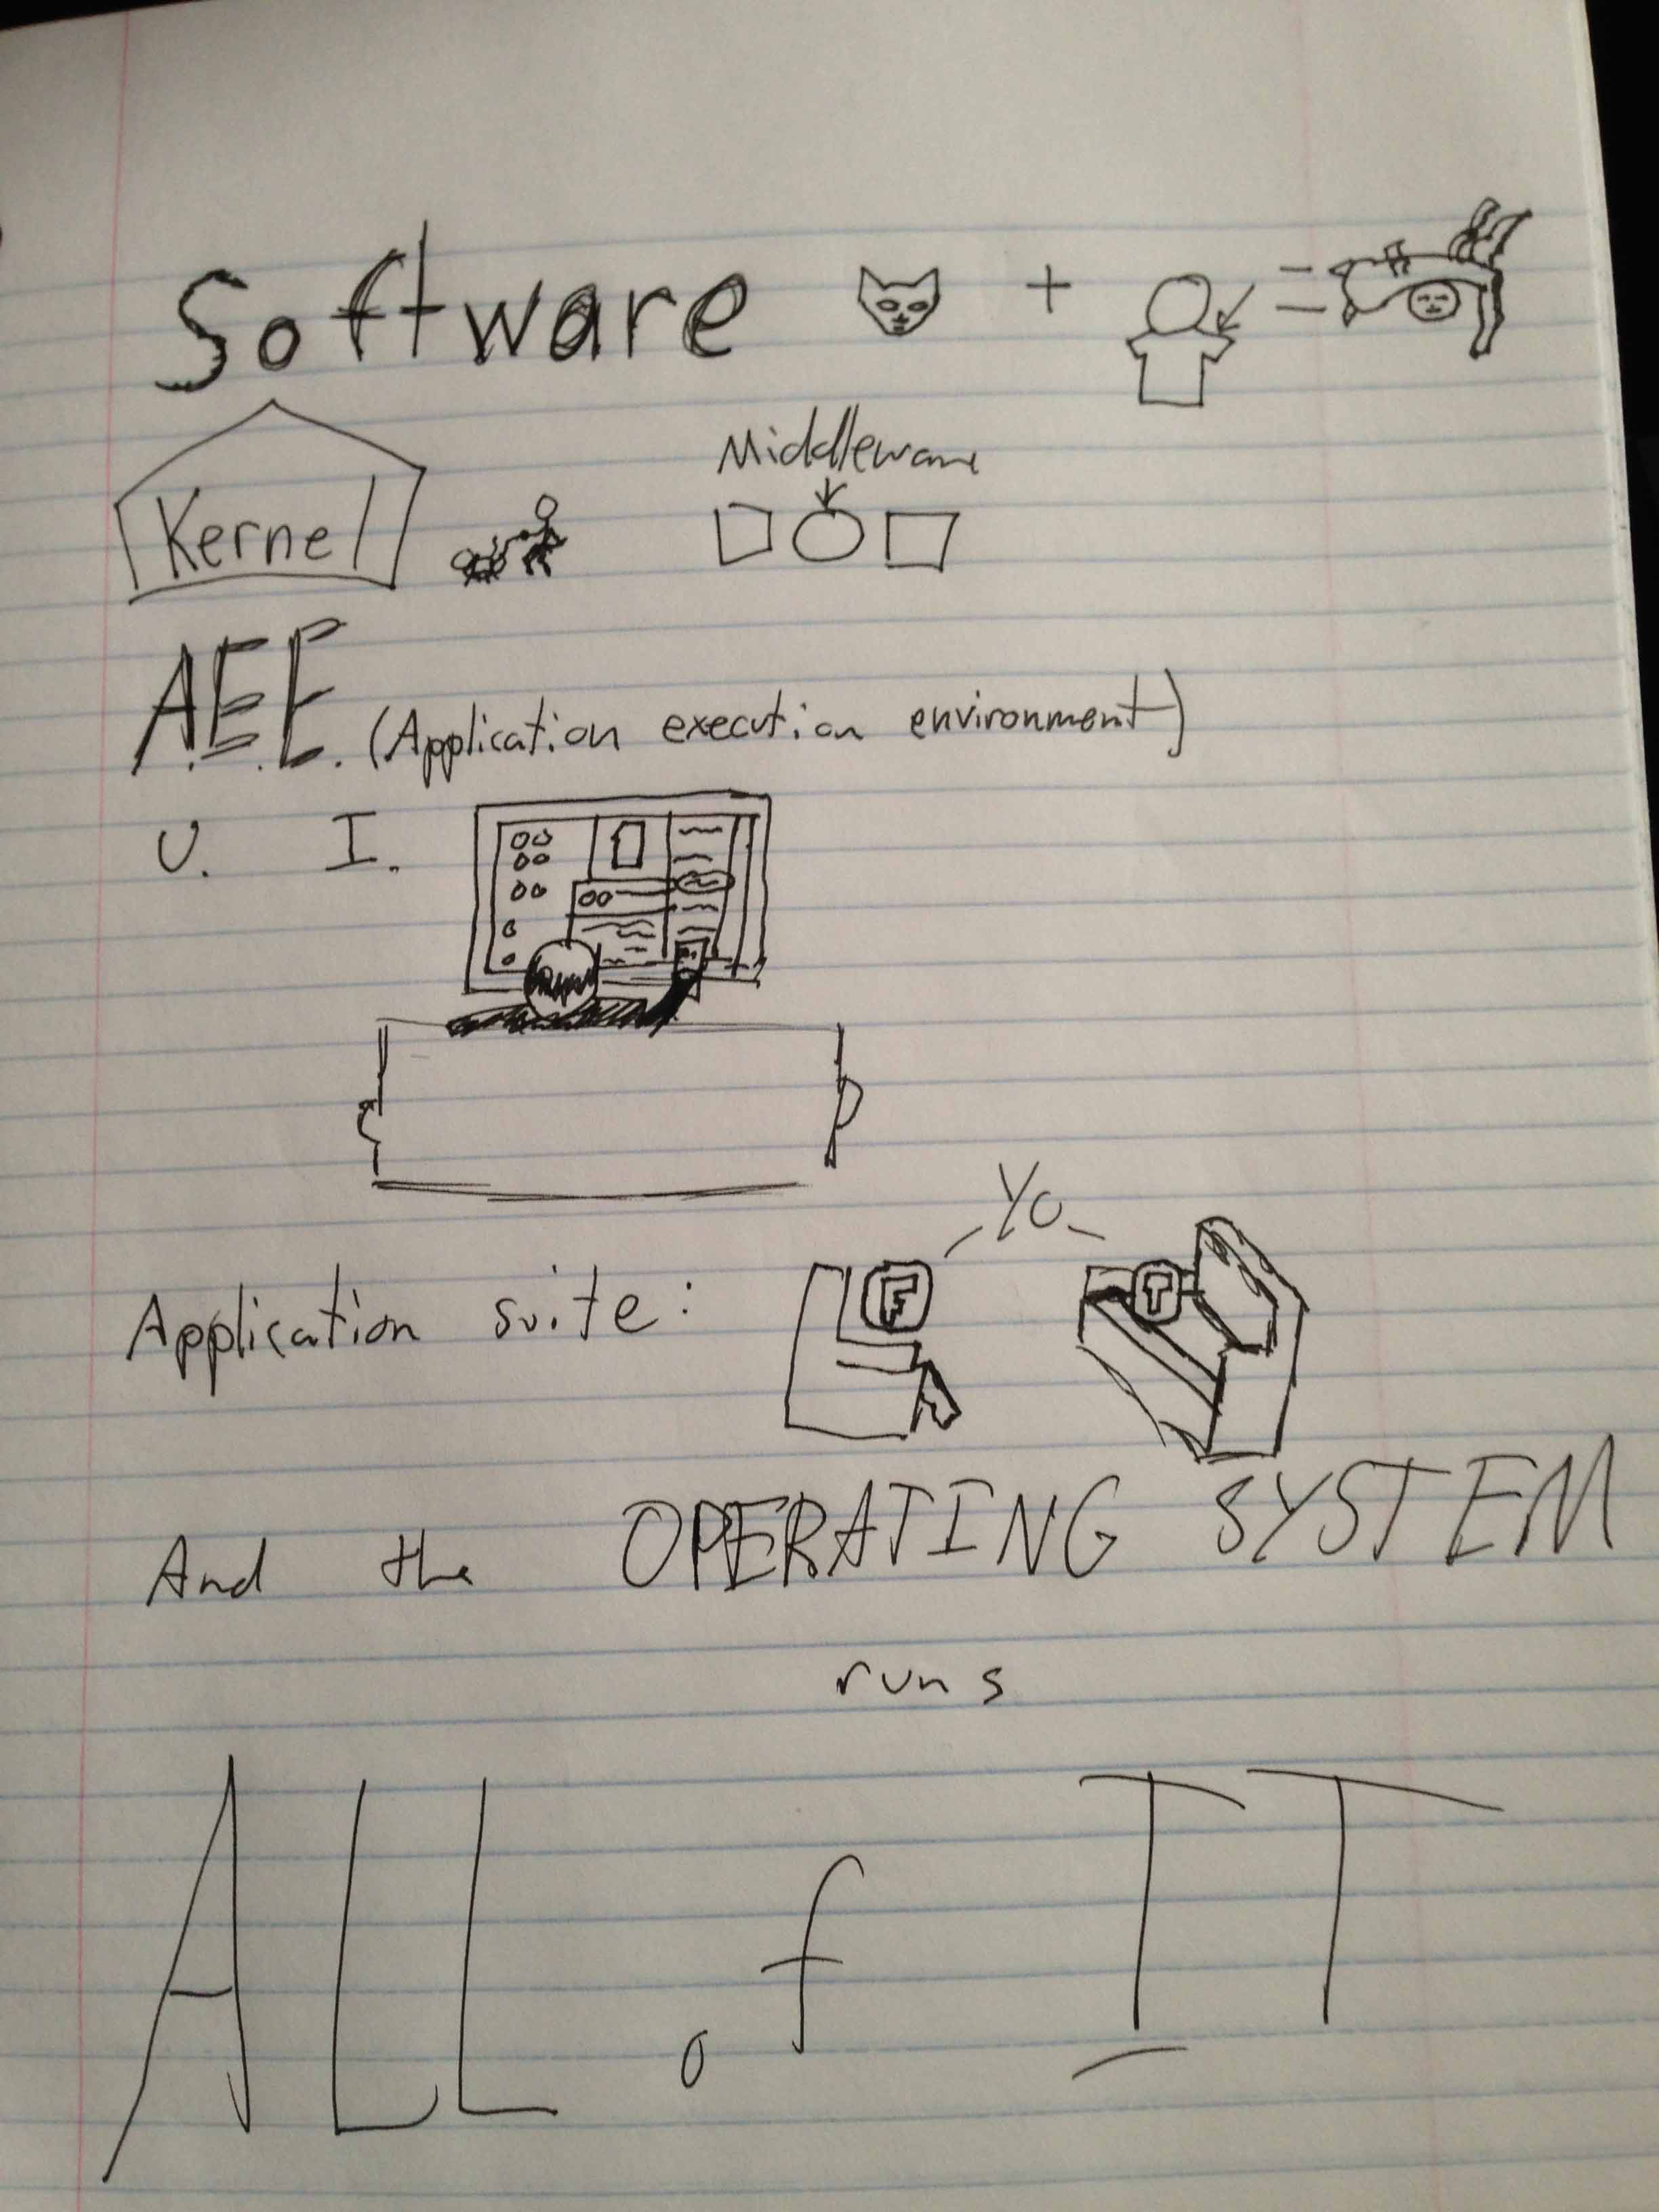 Software + =
Kernel
Middleware
A.E.E. (Application execution environment)
U. I.
Yo
Application suite: F T
And the OPERATING SYSTEM
runs
ALL of IT